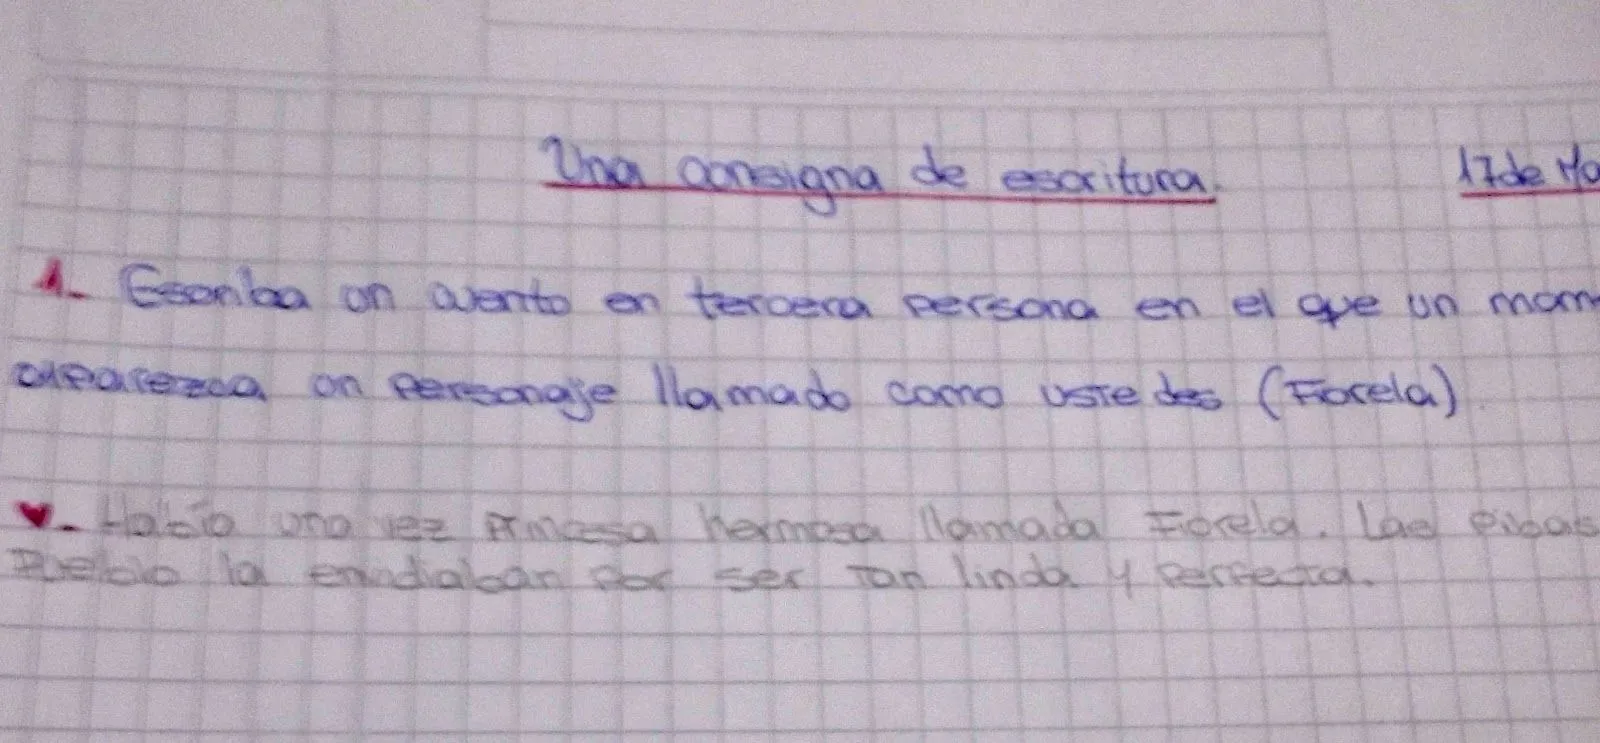 Una consigna de escritura.
17 de Ma
1- Escriba un cuento en tercera persona en el que un mom
aparezca un personaje llamado como ustedes (Fiorela)
♥- Había una vez princesa hermosa llamada Fiorela. Las pibas
Pueblo la envidiaban por ser tan linda y perfecta.